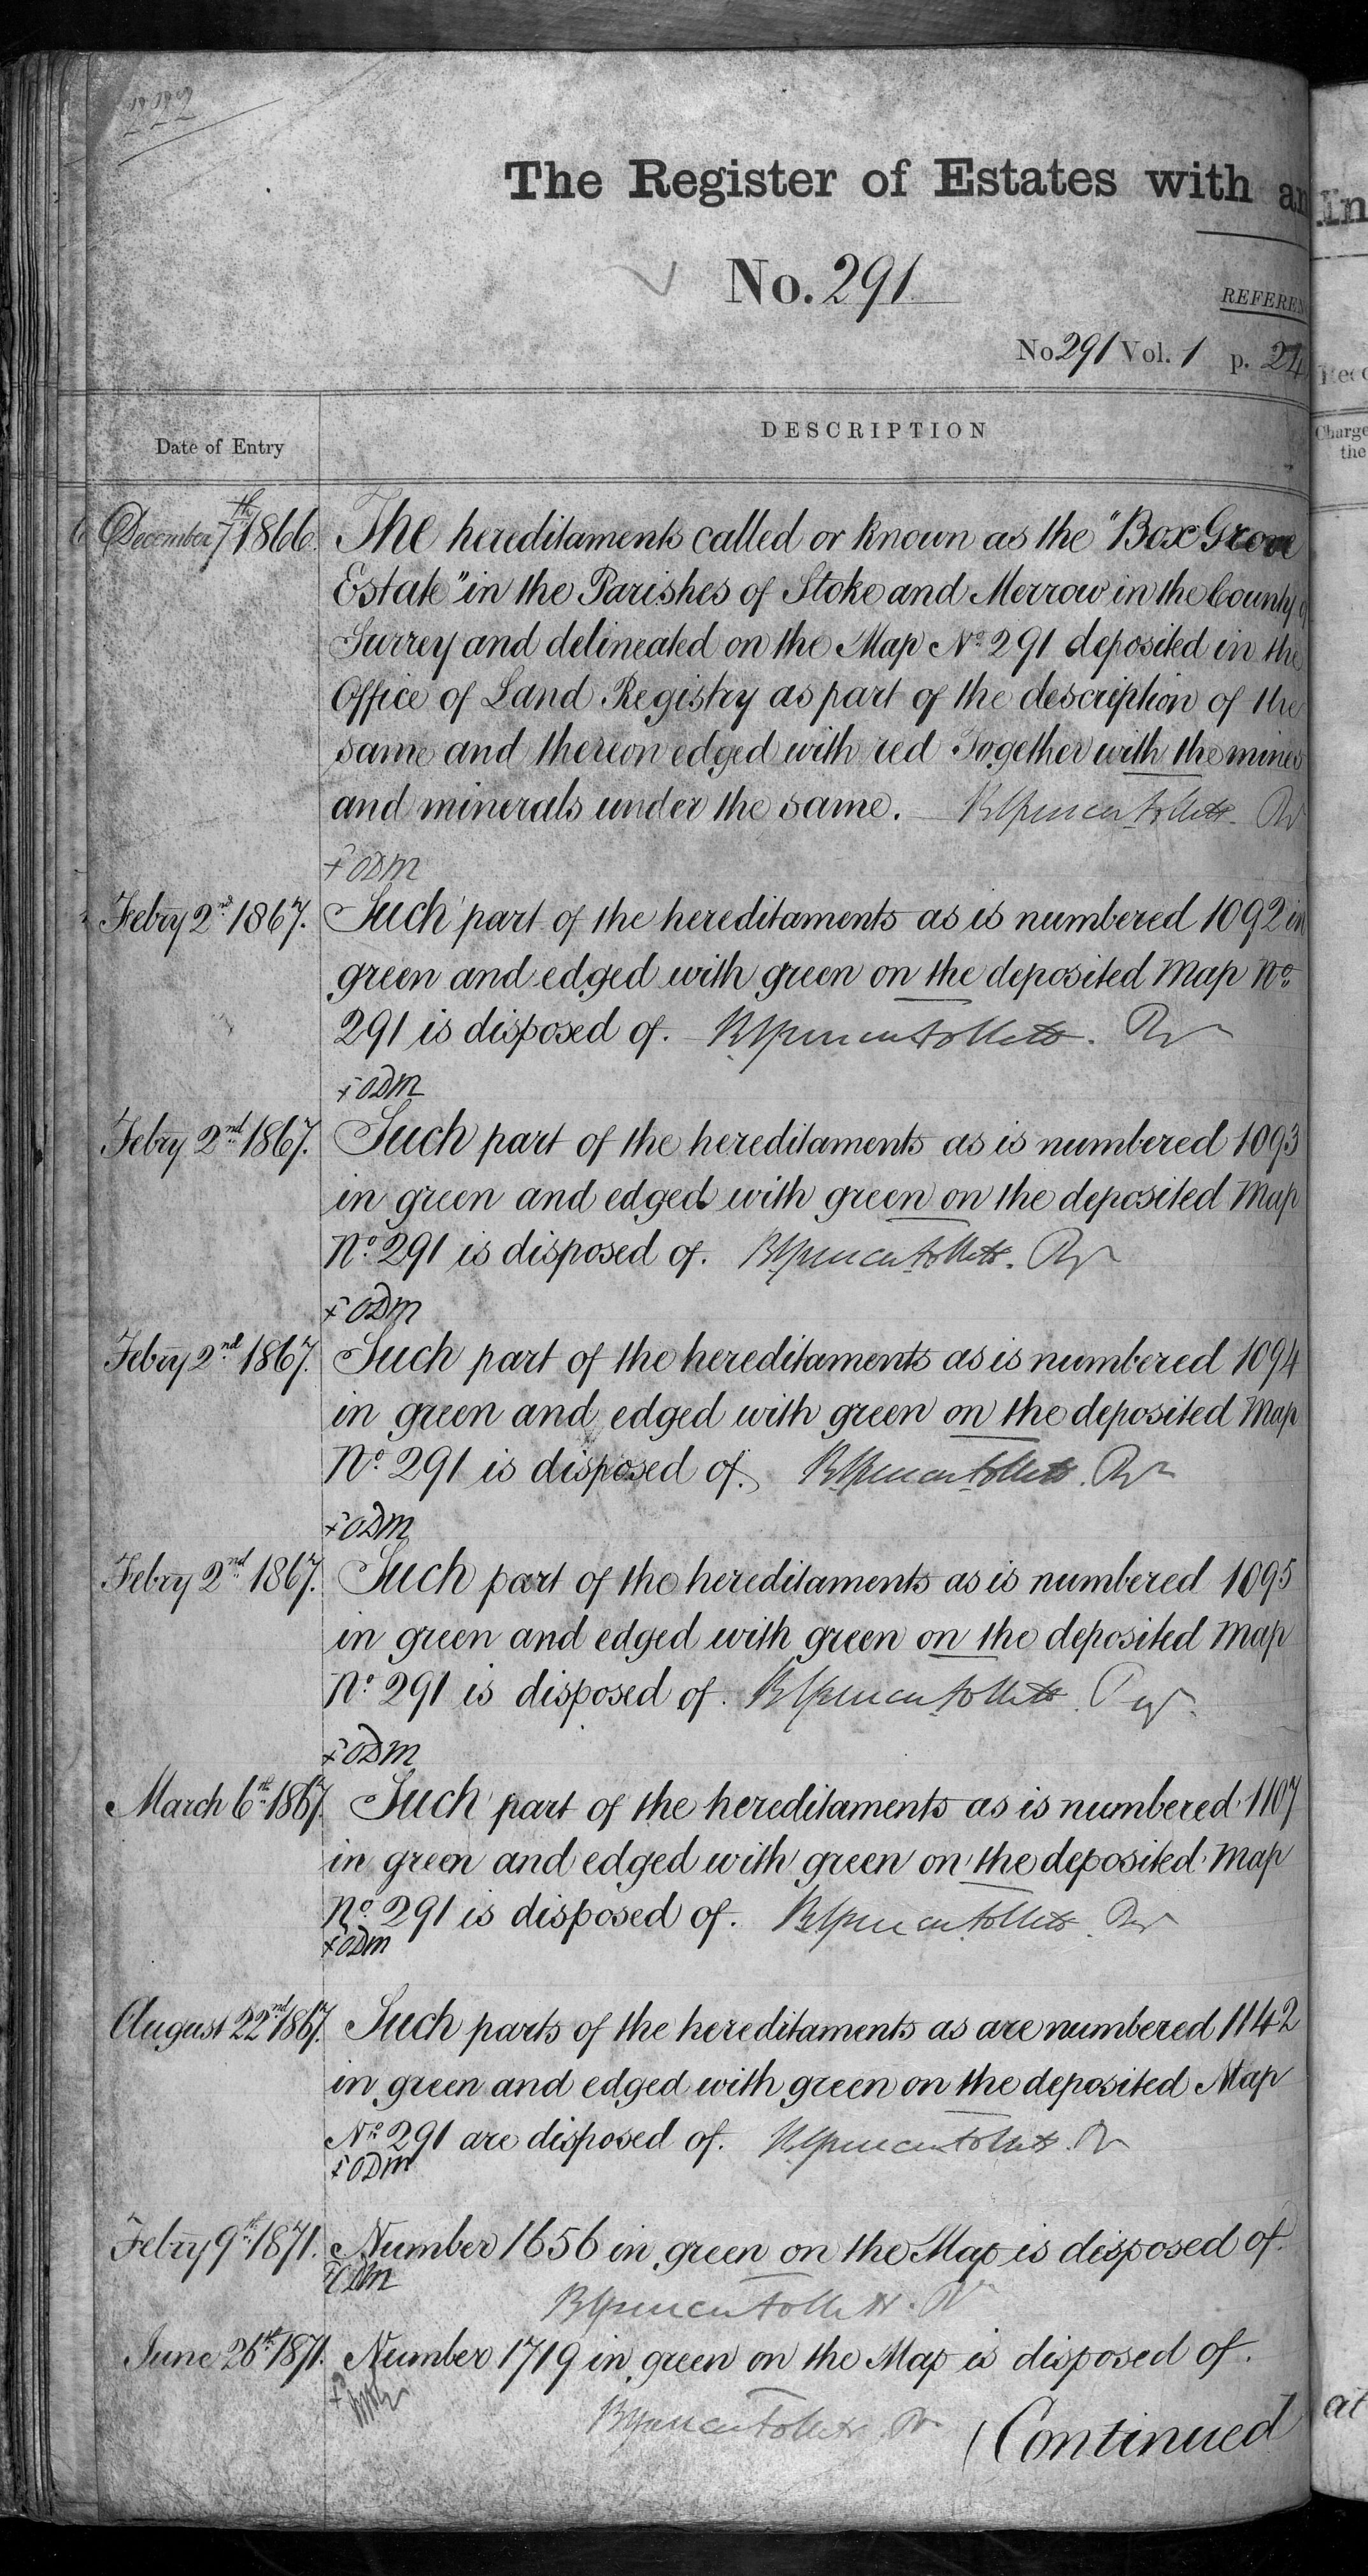 The Register of Estates with an
No. 291
REFEREN
No 291 Vol. 1 p. 24
Date of Entry
DESCRIPTION
December 7th 1866. The hereditaments called or known as the "Box Grove
Estate" in the Parishes of Stoke and Merrow in the County of
Surrey and delineated on the Map No. 291 deposited in the
Office of Land Registry as part of the description of the
same and thereon edged with red Together with the mines
and minerals under the same.
+ ODM
Febry 2nd 1867. Such part of the hereditaments as is numbered 1092 in
green and edged with green on the deposited Map No.
291 is disposed of.
+ ODM
Febry 2nd 1867. Such part of the hereditaments as is numbered 1093
in green and edged with green on the deposited Map
No. 291 is disposed of.
+ ODM
Febry 2nd 1867. Such part of the hereditaments as is numbered 1094
in green and edged with green on the deposited Map
No. 291 is disposed of.
+ ODM
Febry 2nd 1867. Such part of the hereditaments as is numbered 1095
in green and edged with green on the deposited Map
No. 291 is disposed of.
+ ODM
March 6th 1867. Such part of the hereditaments as is numbered 1107
in green and edged with green on the deposited Map
No. 291 is disposed of.
+ ODM
August 22nd 1867. Such parts of the hereditaments as are numbered 1142
in green and edged with green on the deposited Map
No. 291 are disposed of.
+ ODM
Febry 9th 1871. Number 1656 in green on the Map is disposed of.
June 26th 1871. Number 1719 in green on the Map is disposed of.
(Continued
In
Charge
the
at